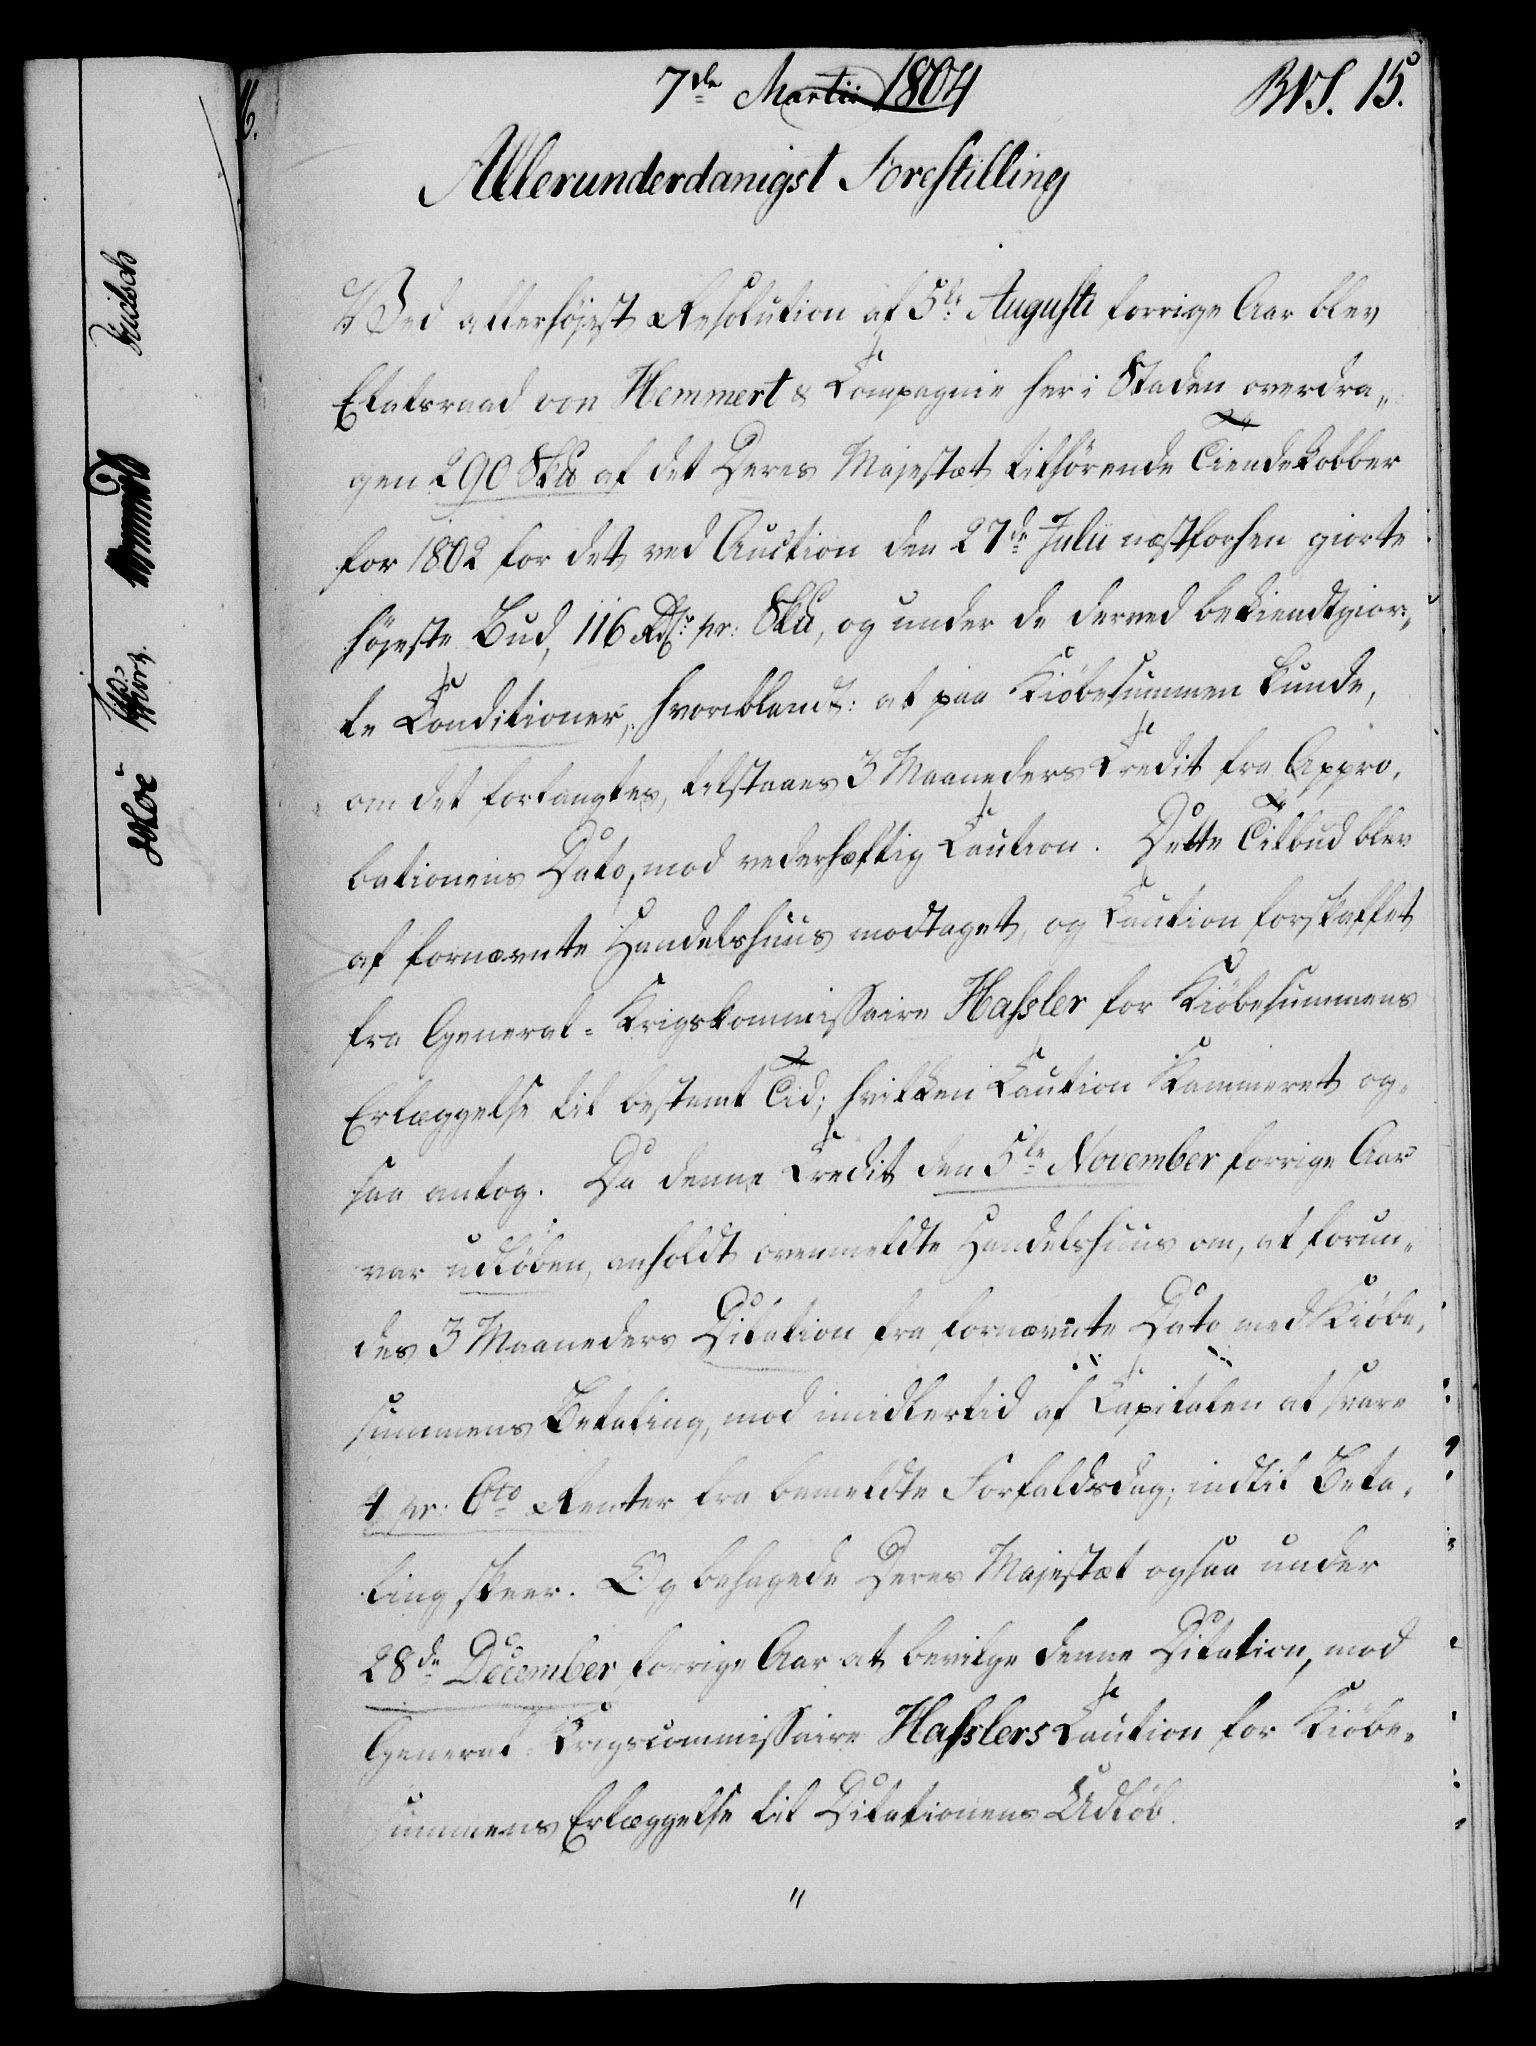 7de Martii 1804
RNS. 15.
Allerunderdanigst Forestilling
Ved allerhøjest Resolution af 5te Augusti forrige Aar blev
Etatsraad von Hemmert & Compagnie her i Staden overdra„
gen 290 Sk℔ af det Deres Majestæt tilhørende Tiendekobber
for 1802 for det ved Auction den 27de Julii næstforhen giorte
højeste Bud, 116 Rdr. pr: Sk℔, og under de derved bekiendtgior„
te Conditioner, hvoriblandt: at paa Kiöbesummen kunde,
om det forlangtes, tilstaaes 3 Maaneders Credit fra Appro„
bationens Dato, mod vederhæftig Caution. Dette Tilbud blev
af fornævnte Handelshuus modtaget, og Caution forskaffet
fra General-Krigskommissaire Hassler for Kiöbesummens
Erlæggelse til bestemt Tid; hvilken Caution Kammeret og„
saa antog. Da denne Credit den 5te November forrige Aar
var udløben, anholdt ovenmeldte Handelshuus om, at forun„
des 3 Maaneders Dilation fra fornævnte Dato med Kiöbe„
summens Betaling, mod imidlertid af Capitalen at svare
4 pr: Cto Renter fra bemeldte Forfaldsdag, indtil Beta„
ling skeer. Og behagede Deres Majestæt ogsaa under
28de December forrige Aar at bevilge denne Dilation, mod
General-Krigscommissaire Hasslers Caution for Kiöbe„
summens Erlæggelse til Dilationens Udløb.
"